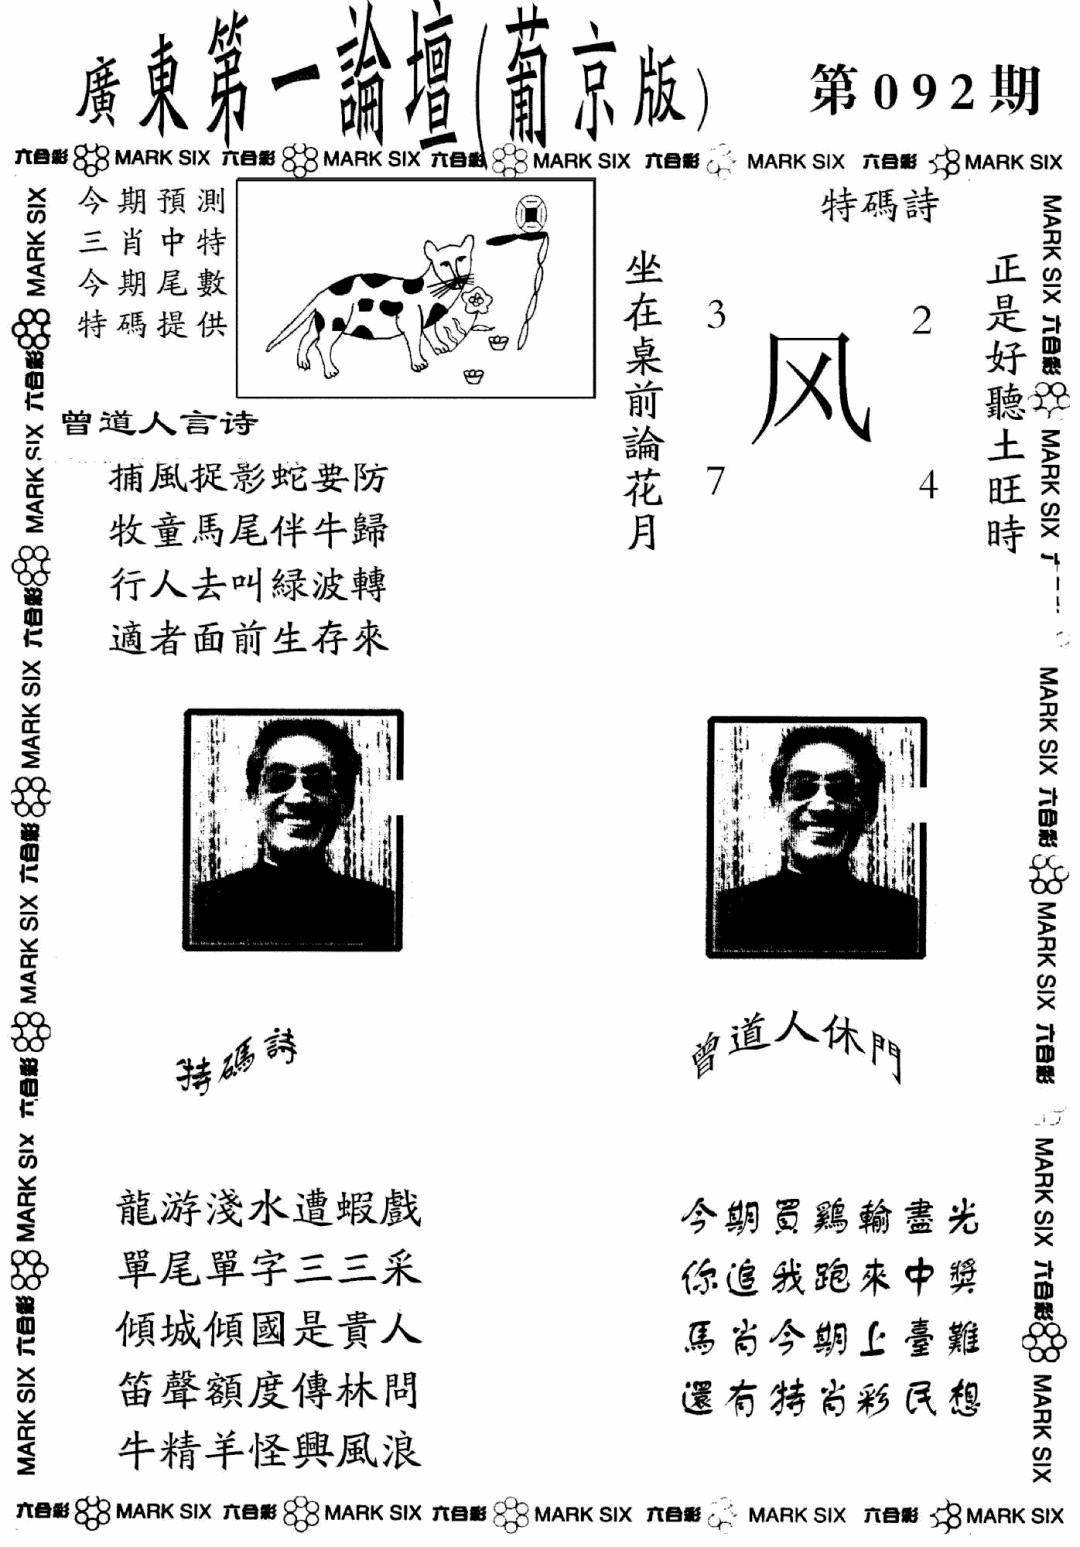 廣東第一論壇(葡京版)
第092期
六合彩 MARK SIX 六合彩 MARK SIX 六合彩 MARK SIX 六合彩 MARK SIX 六合彩 MARK SIX
今期預測
三肖中特
今期尾數
特碼提供
特碼詩
正是好聽土旺時
坐在桌前論花月
3 2
风
7 4
曾道人言诗
捕風捉影蛇要防
牧童馬尾伴牛歸
行人去叫緑波轉
適者面前生存來
特碼詩
龍游淺水遭蝦戲
單尾單字三三采
傾城傾國是貴人
笛聲額度傳林問
牛精羊怪興風浪
曾道人休門
今期買鷄輸盡光
你追我跑來中獎
馬肖今期上臺難
還有特肖彩民想
MARK SIX 六合彩 MARK SIX 六合彩 MARK SIX 六合彩 MARK SIX 六合彩 MARK SIX 六合彩 MARK SIX
MARK SIX 六合彩 MARK SIX
MARK SIX 六合彩 MARK SIX 六合彩
MARK SIX 六合彩 MARK SIX
六合彩 MARK SIX 六合彩 MARK SIX 六合彩 MARK SIX 六合彩 MARK SIX 六合彩 MARK SIX